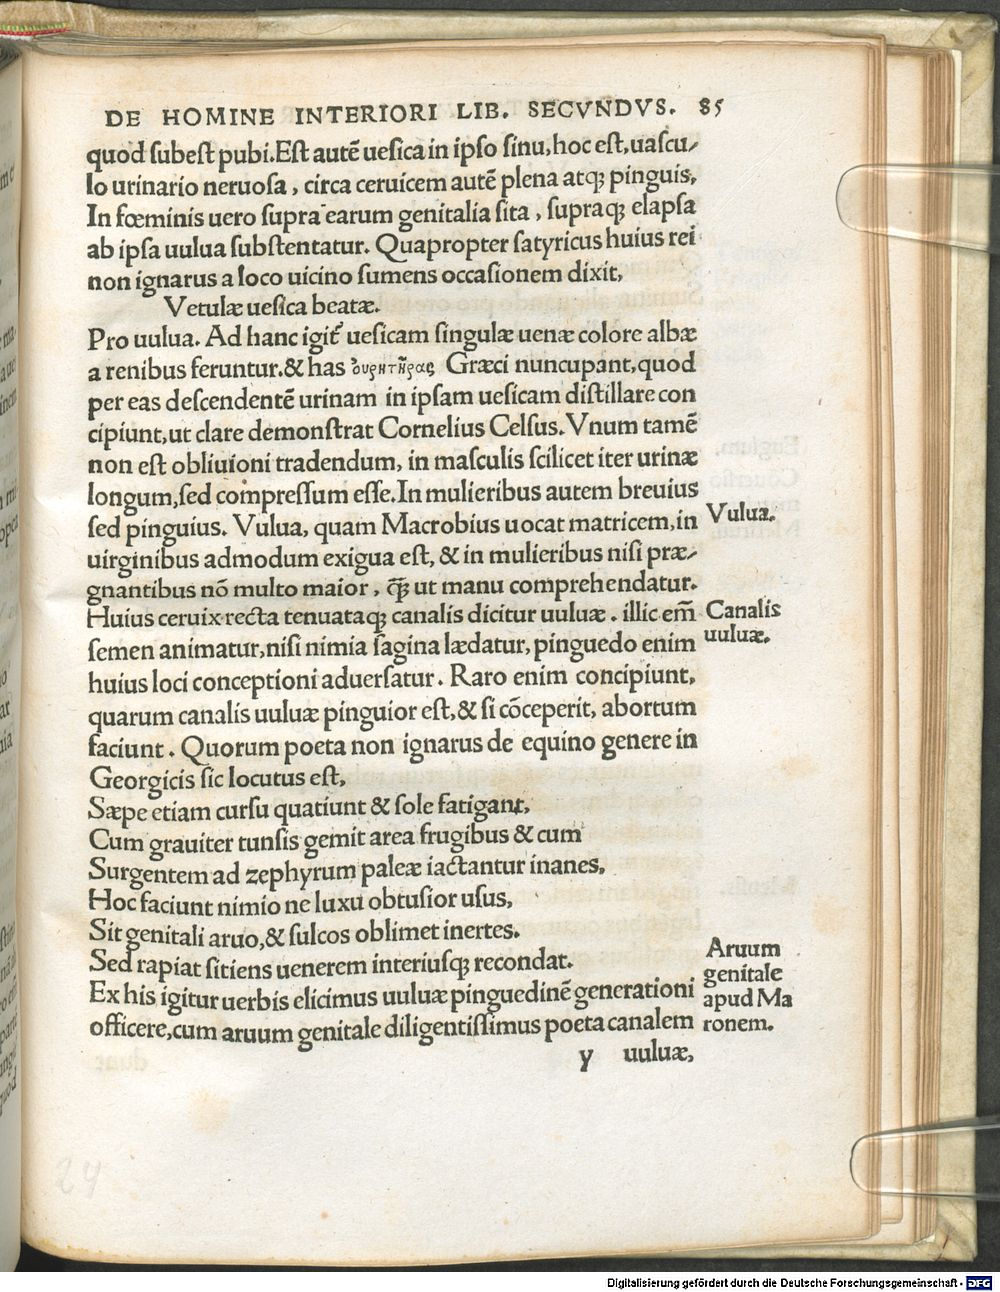 DE HOMINE INTERIORI LIB. SECVNDVS. 85
quod subest pubi. Est autē uesica in ipso sinu, hoc est, uascu-
lo urinario neruosa, circa ceruicem autē plena atq; pinguis,
In fœminis uero supra earum genitalia sita, supraq; elapsa
ab ipsa uulua substentatur. Quapropter satyricus huius rei
non ignarus a loco uicino sumens occasionem dixit,
Vetulæ uesica beatæ.
Pro uulua. Ad hanc igit̃ uesicam singulæ uenæ colore albæ
a renibus feruntur. & has ὀυρητῆρας Græci nuncupant, quod
per eas descendentē urinam in ipsam uesicam distillare con
cipiunt, ut clare demonstrat Cornelius Celsus. Vnum tamē
non est obliuioni tradendum, in masculis scilicet iter urinæ
longum, sed compressum esse. In mulieribus autem breuius
sed pinguius. Vulua, quam Macrobius uocat matricem, in
Vulua.
uirginibus admodum exigua est, & in mulieribus nisi præ-
gnantibus nō multo maior, q̃ ut manu comprehendatur.
Huius ceruix recta tenuataq; canalis dicitur uuluæ. illic em̃
Canalis
uuluæ.
semen animatur, nisi nimia sagina lædatur, pinguedo enim
huius loci conceptioni aduersatur. Raro enim concipiunt,
quarum canalis uuluæ pinguior est, & si cōceperit, abortum
faciunt. Quorum poeta non ignarus de equino genere in
Georgicis sic locutus est,
Sæpe etiam cursu quatiunt & sole fatigant,
Cum grauiter tunsis gemit area frugibus & cum
Surgentem ad zephyrum paleæ iactantur inanes,
Hoc faciunt nimio ne luxu obtusior usus,
Sit genitali aruo, & sulcos oblimet inertes.
Sed rapiat sitiens uenerem interiusq; recondat.
Ex his igitur uerbis elicimus uuluæ pinguedinē generationi
officere, cum aruum genitale diligentissimus poeta canalem
Aruum
genitale
apud Ma
ronem.
y uuluæ,
24
Digitalisierung gefördert durch die Deutsche Forschungsgemeinschaft - DFG